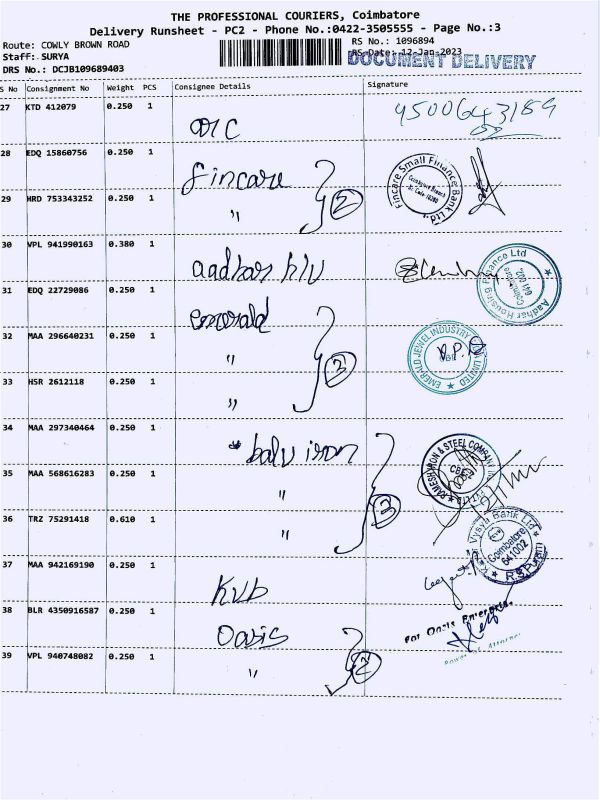 THE PROFESSIONAL COURIERS, Coimbatore
Delivery Runsheet - PC2 - Phone No.:0422-3505555 - Page No.:3
Route: COWLY BROWN ROAD
RS No.: 1096894
Staff: SURYA
RS Date: 12-Jan-2023
DOCUMENT DELIVERY
DRS No.: DCJB109689403
S No Consignment No Weight PCS Consignee Details Signature
27 KTD 412079 0.250 1 4500643189
28 EDQ 15860756 0.250 1 fincare
Fincare Small Finance Bank Ltd
29 HRD 753343252 0.250 1 " 2
30 VPL 941990163 0.380 1 aadhar
Aadhar Housing Finance Ltd
Coimbatore
641 002
31 EDQ 22729086 0.250 1 emerald
32 MAA 296640231 0.250 1 " 3
EMERALD JEWEL INDUSTRY LIMITED
CBE
33 HSR 2612118 0.250 1 "
34 MAA 297340464 0.250 1 iron
& STEEL COMPANY
35 MAA 568616283 0.250 1 " 3
36 TRZ 75291418 0.610 1 "
Vysya Bank Ltd
Coimbatore
641002
R.S.Puram
37 MAA 942169190 0.250 1 KVB
38 BLR 4350916587 0.250 1 Oasis
For Oasis Enterprises,
Power of Attorney
39 VPL 940748082 0.250 1 " 2